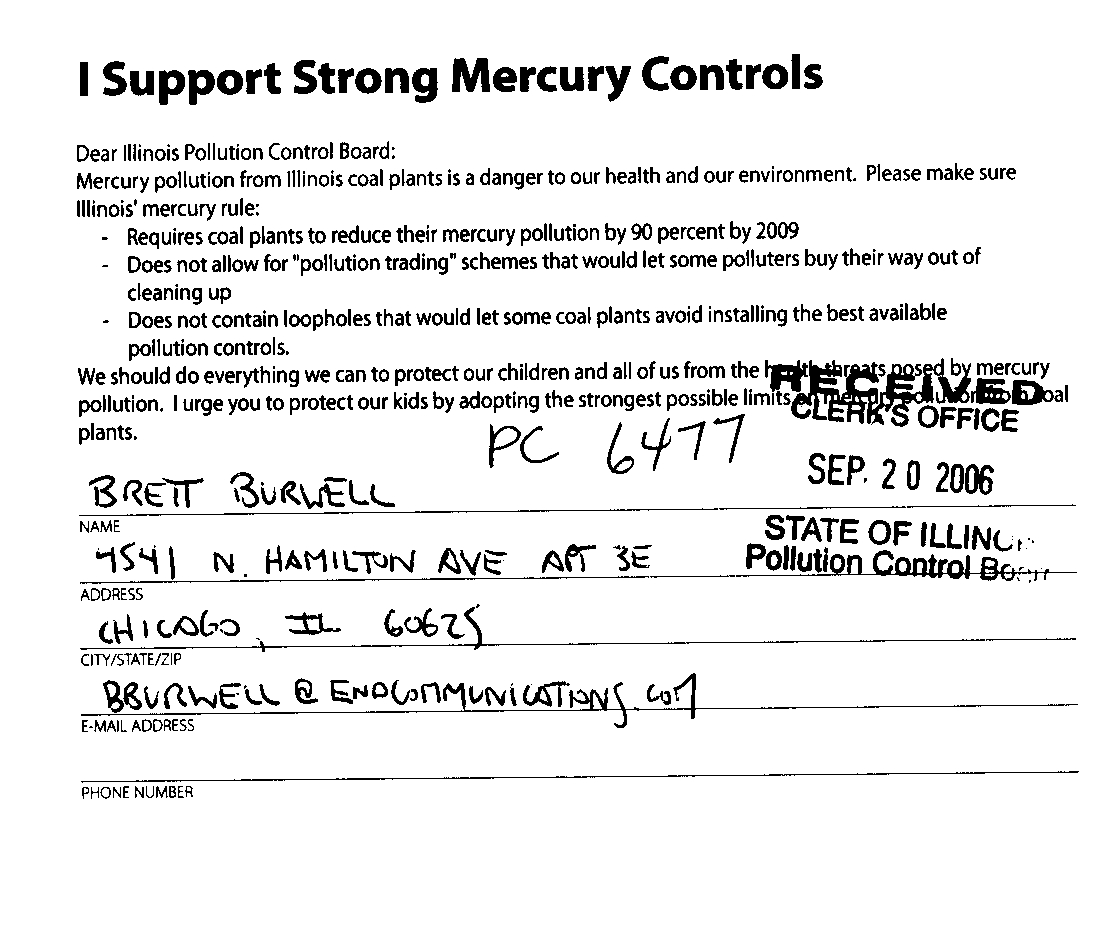 I Support Strong Mercury Controls
Dear Illinois Pollution Control Board:
Mercury pollution from Illinois coal plants is a danger to our health and our environment. Please make sure
Illinois' mercury rule:
- Requires coal plants to reduce their mercury pollution by 90 percent by 2009
- Does not allow for "pollution trading" schemes that would let some polluters buy their way out of
cleaning up
- Does not contain loopholes that would let some coal plants avoid installing the best available
pollution controls.
We should do everything we can to protect our children and all of us from the health threats posed by mercury
RECEIVED
pollution. I urge you to protect our kids by adopting the strongest possible limits on mercury pollution from coal
CLERK'S OFFICE
plants.
PC 6477
SEP. 20 2006
BRETT BURWELL
NAME
STATE OF ILLINOIS
4541 N. HAMILTON AVE APT 3E
Pollution Control Board
ADDRESS
CHICAGO, IL 60625
CITY/STATE/ZIP
BBURWELL@ENDCOMMUNICATIONS.COM
E-MAIL ADDRESS
PHONE NUMBER